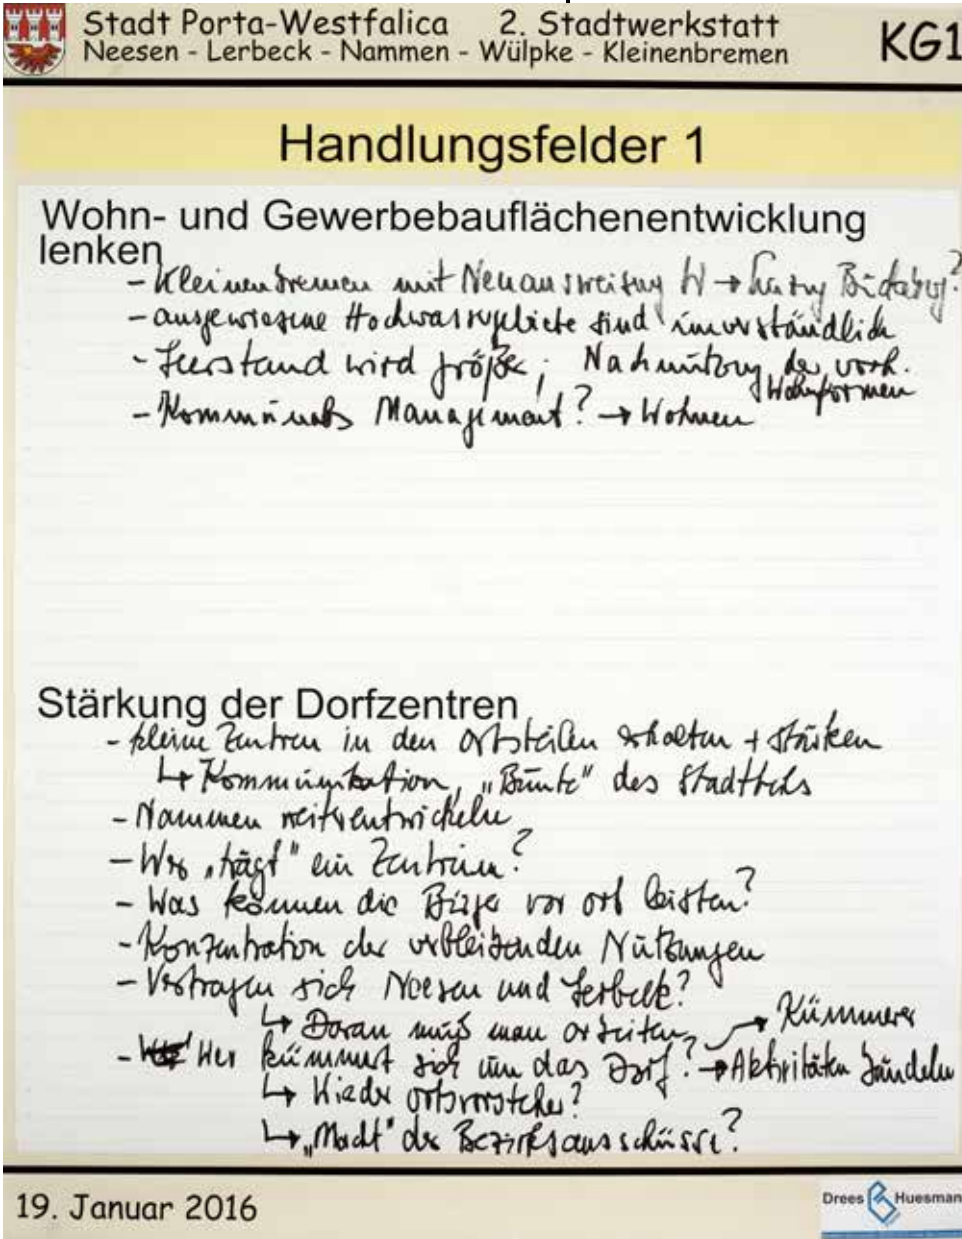 Stadt Porta-Westfalica 2. Stadtwerkstatt
Neesen - Lerbeck - Nammen - Wülpke - Kleinenbremen
KG1
Handlungsfelder 1
Wohn- und Gewerbebauflächenentwicklung
lenken
- Kleinenbremen mit Neuausweisung W →
- ausgewiesene Hochwassergebiete sind unverständlich
- Leerstand wird größer; Nachnutzung der vorh.
Wohnformen
- Kommunales Management? → Wohnen
Stärkung der Dorfzentren
- kleine Zentren in den Ortsteilen erhalten + stärken
↳ Kommunikation, „Bunte" des Stadtteils
- Nammen weiterentwickeln
- Wer „trägt" ein Zentrum?
- Was können die Bürger vor Ort leisten?
- Konzentration der verbleibenden Nutzungen
- Vertragen sich Neesen und Lerbeck?
↳ Daran muß man arbeiten
→ Kümmerer
- Wer kümmert sich um das Dorf? → Aktivitäten bündeln
↳ Wieder Ortsvorsteher?
↳ „Macht" der Bezirksausschüsse?
19. Januar 2016
Drees Huesman